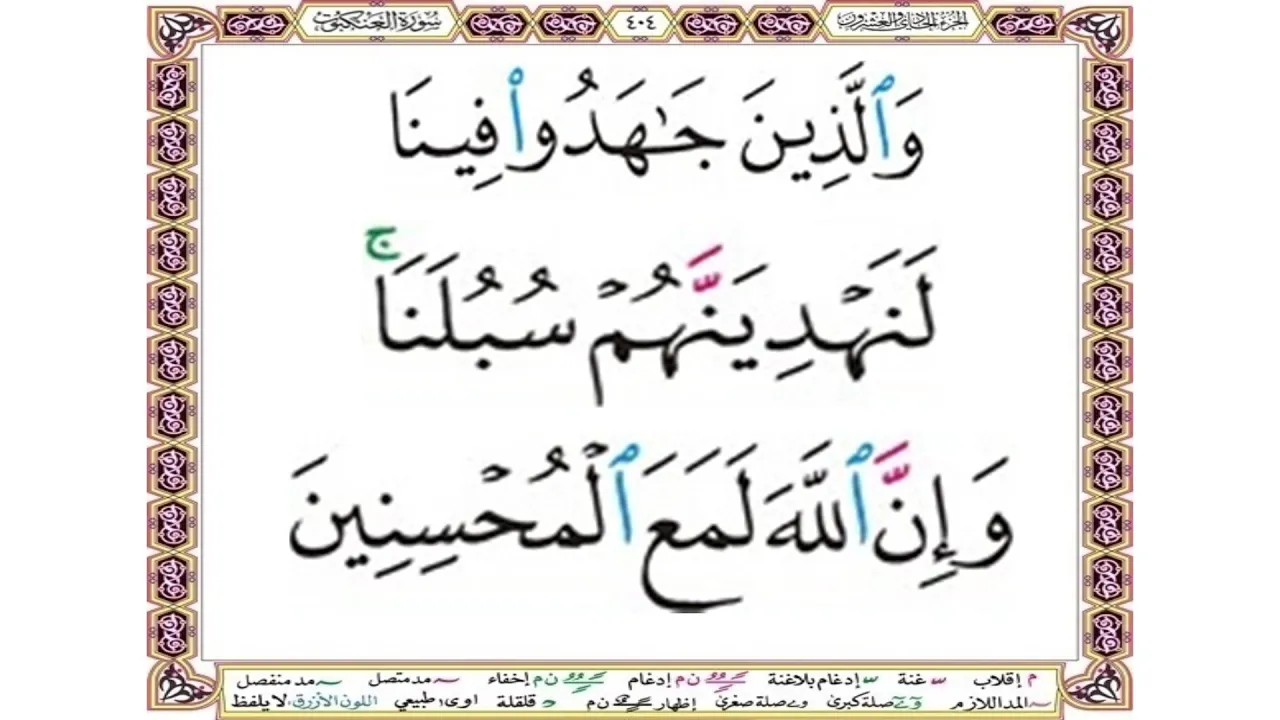 الجزء الحادي والعشرون ٤٠٤ سورة العنكبوت
وَٱلَّذِينَ جَـٰهَدُوا۟ فِينَا
لَنَهْدِيَنَّهُمْ سُبُلَنَا ۚ
وَإِنَّ ٱللَّهَ لَمَعَ ٱلْمُحْسِنِينَ
م إقلاب غنة إدغام بلاغنة ن م إدغام ن م إخفاء مد متصل مد منفصل
المد اللازم صلة كبرى صلة صغرى إظهار ن م قلقلة اوى طبيعي اللون الأزرق لا يلفظ